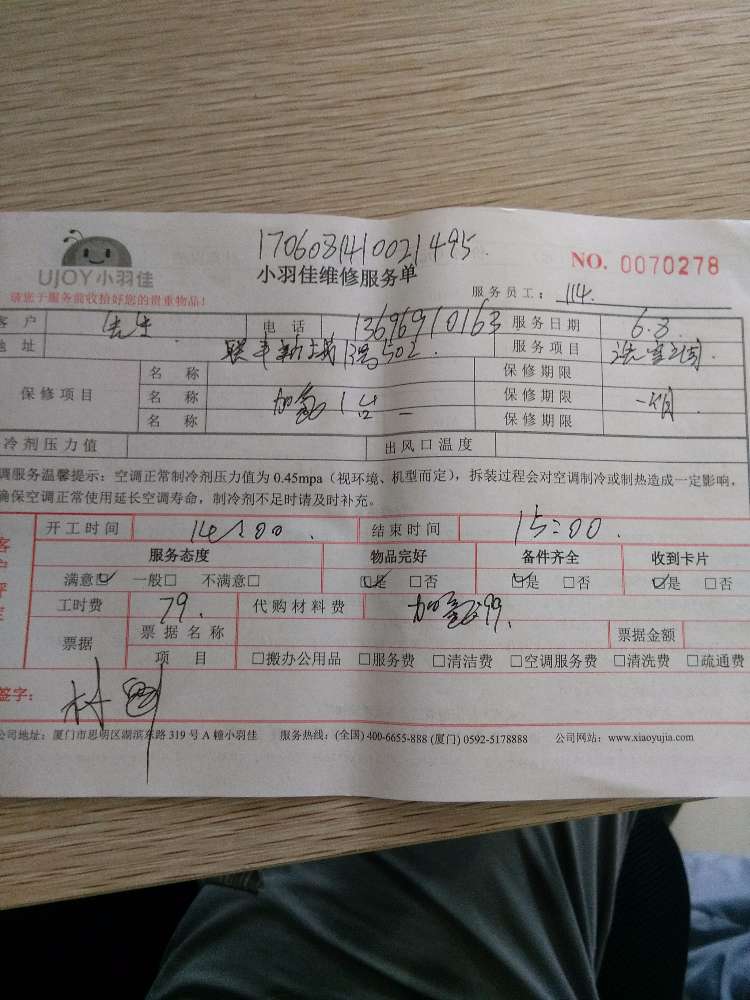 170608141002l495
UJOY小羽佳
小羽佳维修服务单
NO. 0070278
请您于服务前收拾好您的贵重物品!
服务员工: 114.
客户 先生 电话 13696910163 服务日期 6.8.
地址 502. 服务项目 洗空调.
保修项目 名称 保修期限
名称 加氟1台 保修期限 一个月
名称 保修期限
冷剂压力值 出风口温度
调服务温馨提示:空调正常制冷剂压力值为 0.45mpa(视环境、机型而定),拆装过程会对空调制冷或制热造成一定影响,
确保空调正常使用延长空调寿命,制冷剂不足时请及时补充。
客户评定
开工时间 14:00. 结束时间 15:00.
服务态度 物品完好 备件齐全 收到卡片
满意☑ 一般□ 不满意□ ☑是 □否 ☑是 □否 ☑是 □否
工时费 79. 代购材料费 加氟:99.
票据 票据名称 票据金额
项目 □搬办公用品 □服务费 □清洁费 □空调服务费 □清洗费 □疏通费
签字:
公司地址:厦门市思明区湖滨东路 319 号 A 幢小羽佳 服务热线:(全国) 400-6655-888 (厦门) 0592-5178888 公司网站:www.xiaoyujia.com